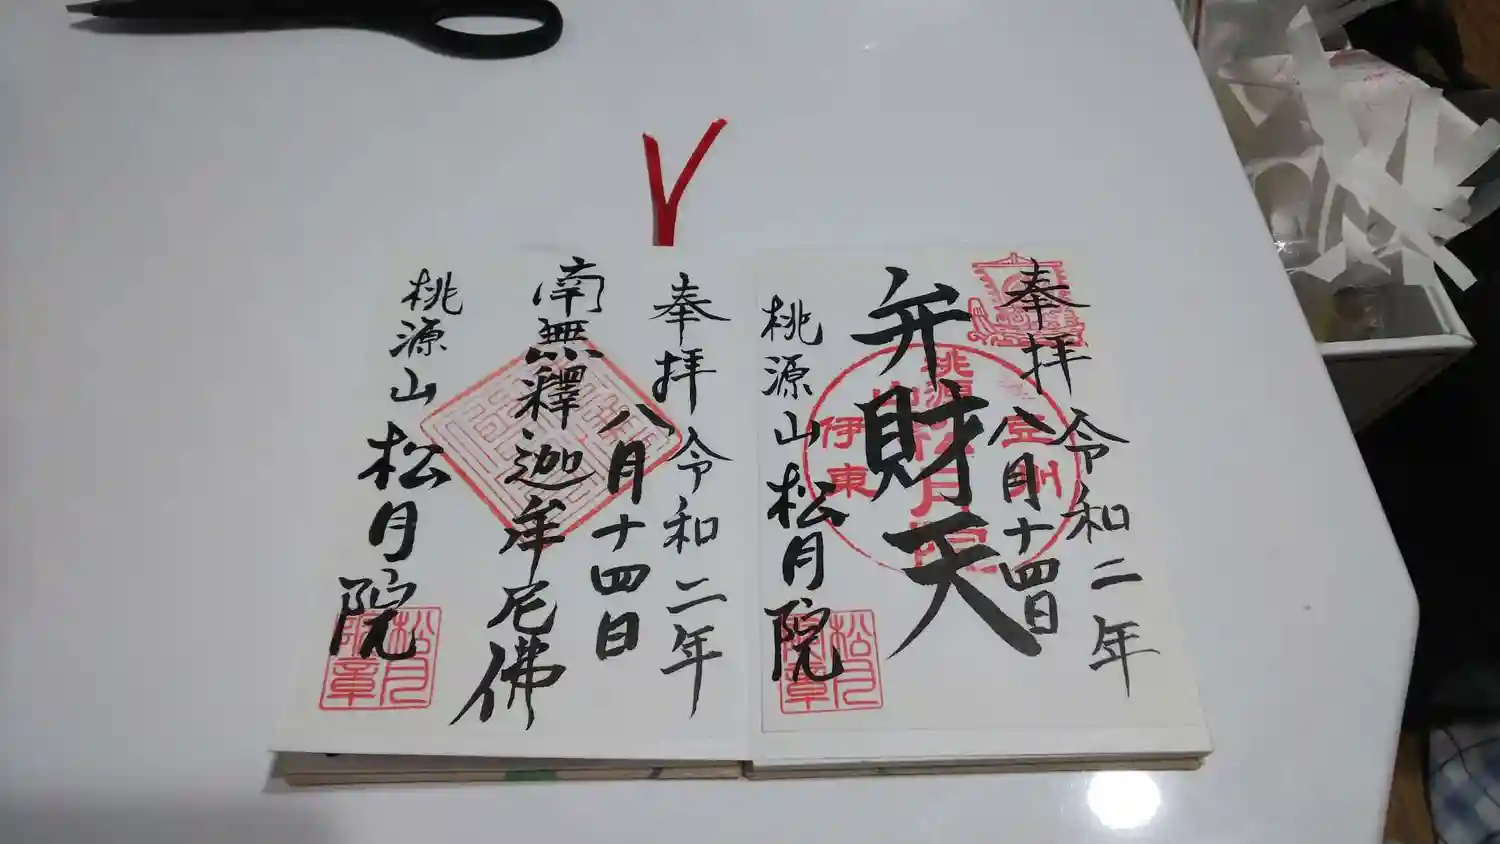 奉拝 令和二年
八月十四日
弁財天
桃源山 松月院
豆州
桃源山松月院
伊東
松月院章
奉拝 令和二年
八月十四日
南無釋迦牟尼佛
桃源山 松月院
松月院章